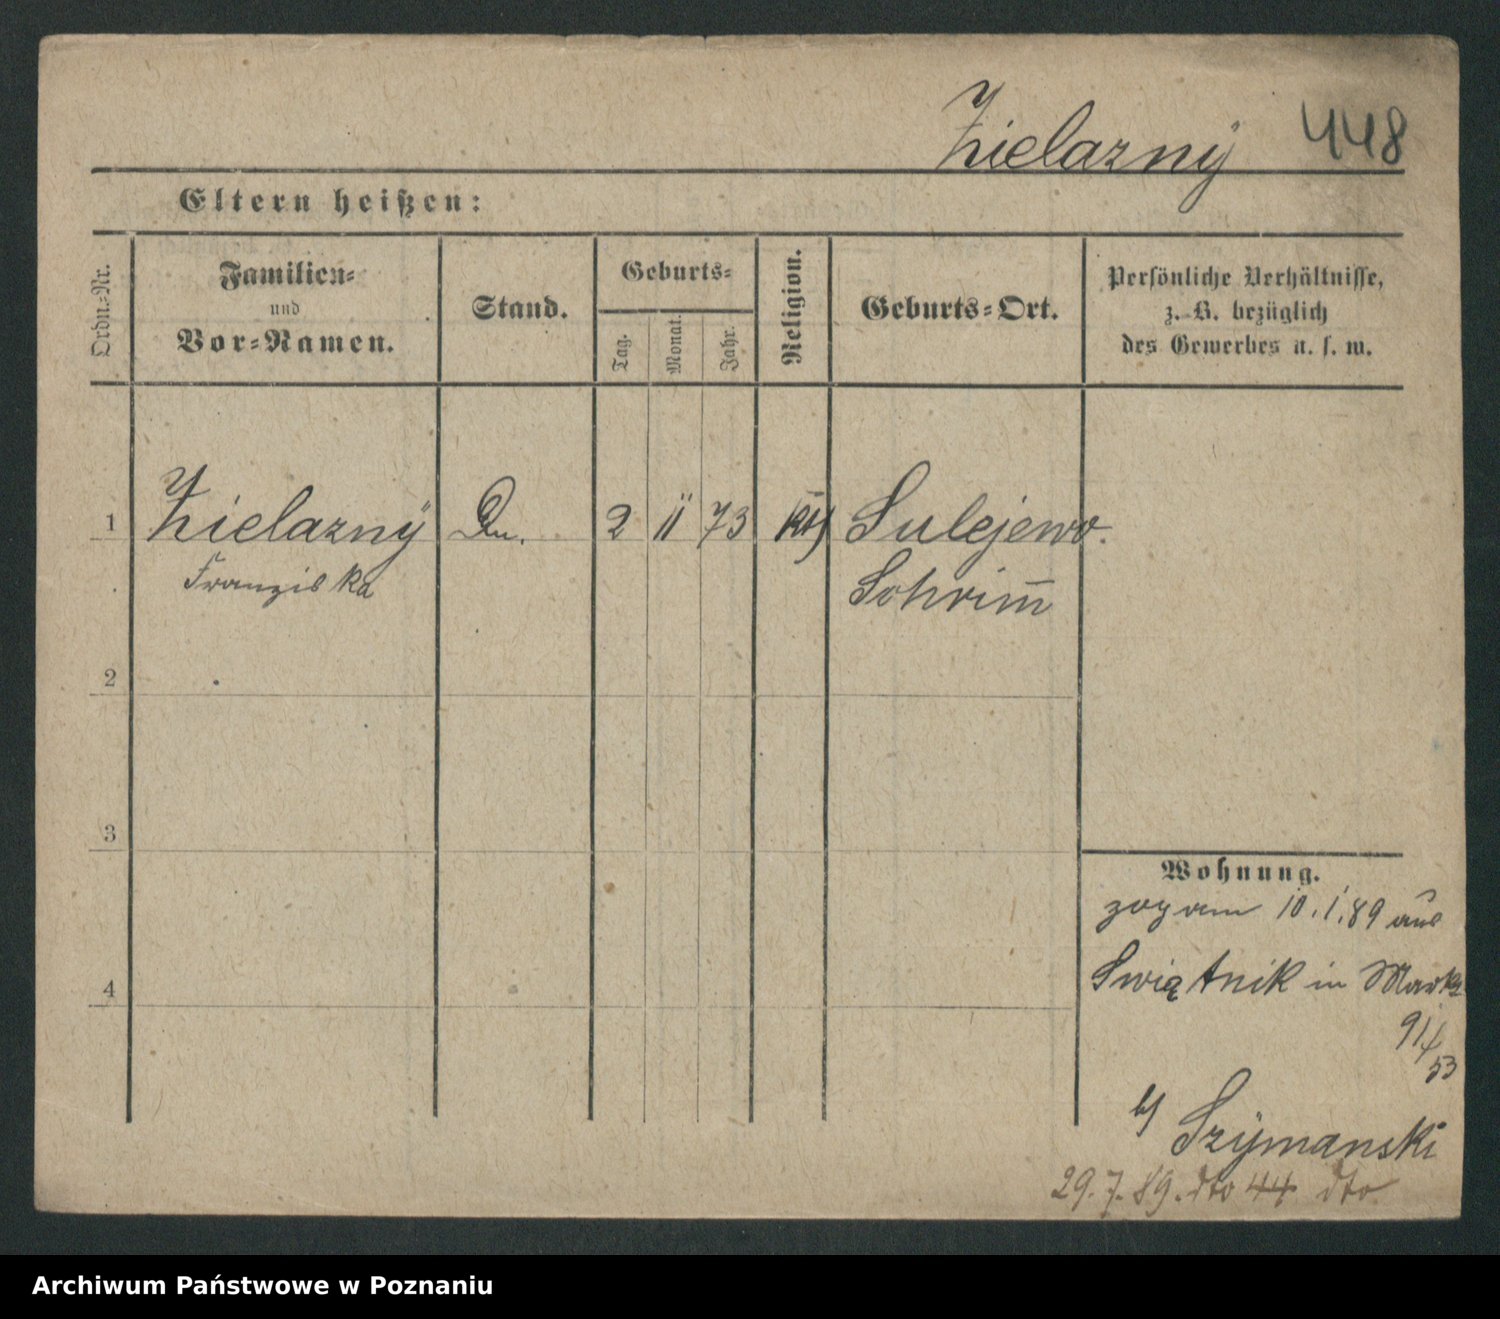 Zielazny 448
Eltern heißen:
Ordn.-Nr.
Familien-
und
Vor-Namen.
Stand.
Geburts-
Tag.
Monat.
Jahr.
Religion.
Geburts-Ort.
Persönliche Verhältnisse,
z. B. bezüglich
des Gewerbes u. s. w.
1 Zielazny Dn. 2 11 73 kth Sulejewo.
Franziska Schrim̅
2
3
4
Wohnung.
zog am 10.1.89 aus
Swiątnik in Markt
91/53
b/ Szymanski
29.7.89. dto 44 dto
Archiwum Państwowe w Poznaniu